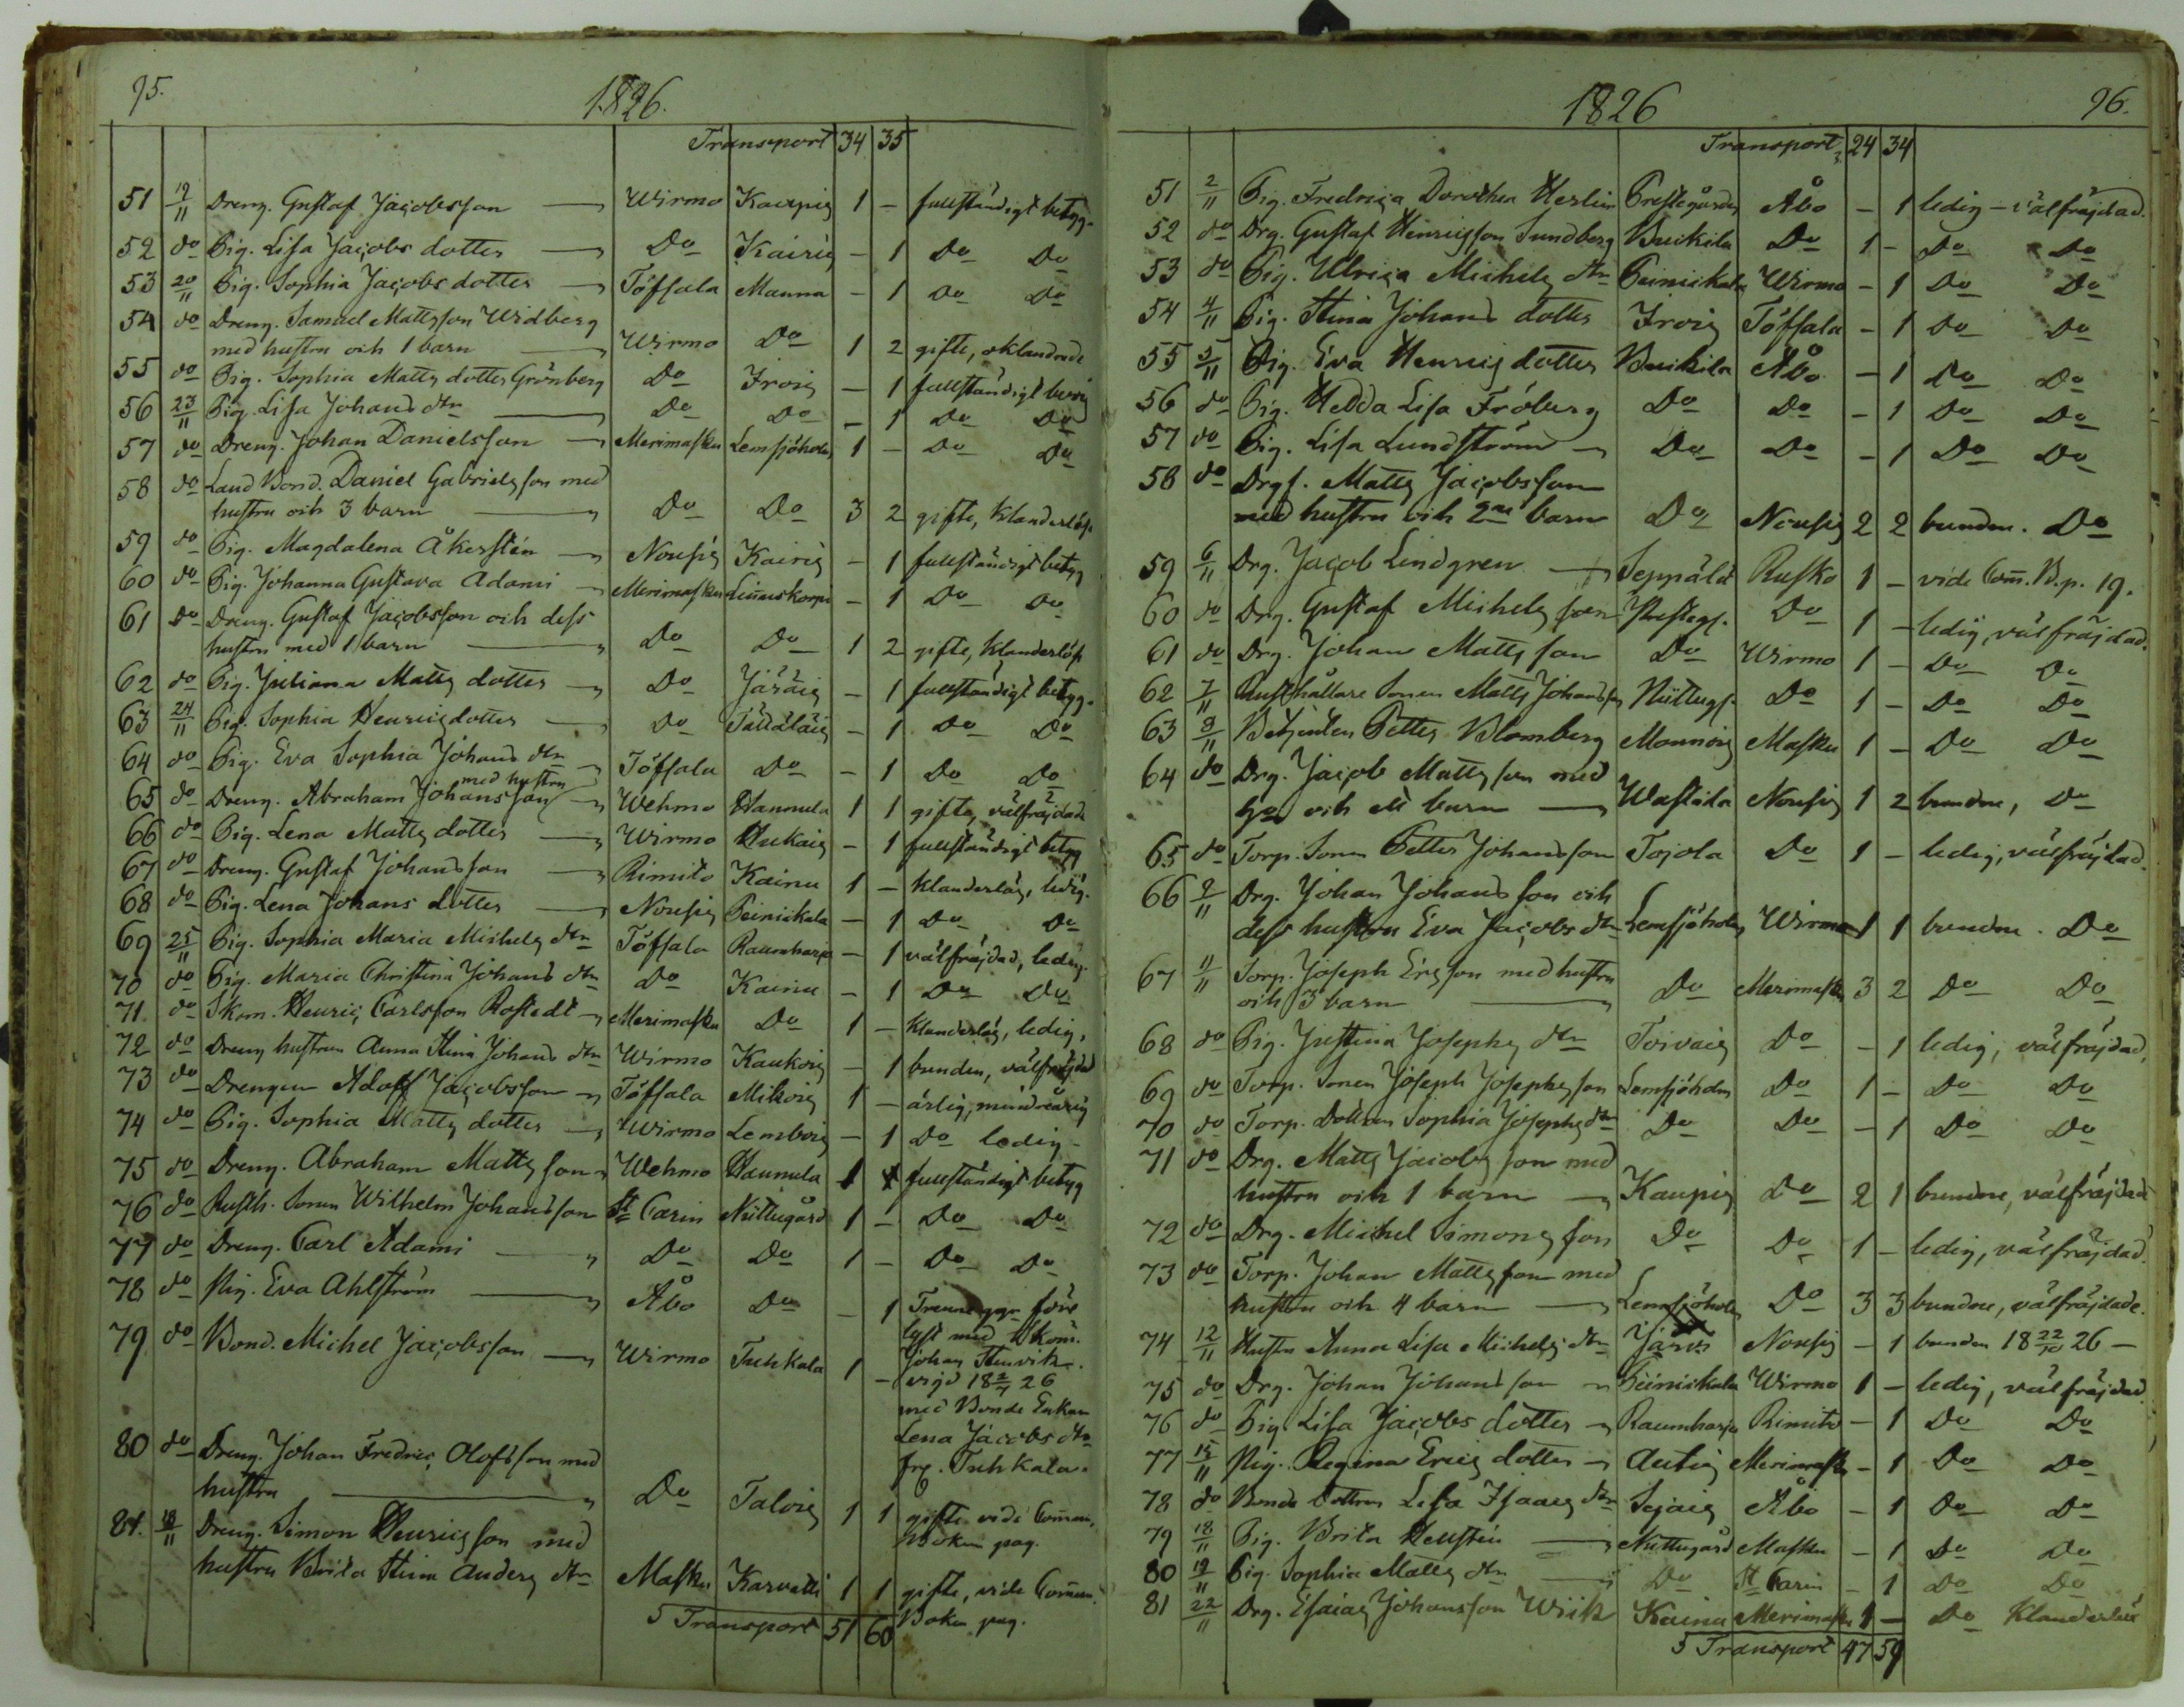 95.
1826.
Transport 34 35
51 19/11 Dreng. Gustaf Jacobsson Wirmo Kaupis 1 - fullständigt betyg.
52 do Pig. Lisa Jacobs dotter Do Kairis - 1 Do Do
53 20/11 Pig. Sophia Jacobs dotter Töfsala Manna - 1 Do Do
54 do Dreng. Samuel Mattsson Widberg
med hustru och 1 barn Wirmo Do 1 2 gifte, oklandrade
55 do Pig. Sophia Matts dotter Grönberg Do Irois - 1 fullständigt
56 23/11 Pig. Lisa Johans dtr Do Do - 1 Do Do
57 do Dreng. Johan Danielsson Merimasku Lemsjöholm 1 - Do Do
58 do Land Bond. Daniel Gabrielsson med
hustru och 3 barn Do Do 3 2 gifte, klanderlös
59 do Pig. Magdalena Åkerstén Nousis Kairis - 1 fullständigt betyg
60 do Pig. Johanna Gustava Adami Merimasku - 1 Do Do
61 do Dreng. Gustaf Jacobsson och dess
hustru med 1 barn Do Do 1 2 gifte, klanderlös
62 do Pig. Juliana Matts dotter Do Järäis - 1 fullständigt betyg.
63 24/11 Pig. Sophia Henricsdotter Do - 1 Do Do
64 do Pig. Eva Sophia Johans dtr Töfsala Do - 1 Do Do
65 do Dreng. Abraham Johansson med hustru Wehmo Hannula 1 1 gifte, välfräjdade
66 do Pig. Lena Matts dotter Wirmo Hukais - 1 fullständigt betyg
67 do Dreng. Gustaf Johansson Rimito Kainu 1 - klanderlös, ledig.
68 do Pig. Lena Johans dotter Nousis Peiniskala - 1 Do Do
69 25/11 Pig. Sophia Maria Michels dtr Töfsala Raumharju - 1 välfräjdad, ledig.
70 do Pig. Maria Christina Johans dtr Do Kainu - 1 Do Do
71 do Skom. Henric Carlsson Rostedt Merimasku Do 1 - klanderlös, ledig,
72 do Dreng hustrun Anna Stina Johans dtr Wirmo Kaukois - 1 bunden, välfräjdad
73 do Drengen Adolf Jacobsson Töfsala Mikois 1 - ärlig, mindreårig
74 do Pig. Sophia Matts dotter Wirmo Lembois - 1 Do ledig -
75 do Dreng. Abraham Mattsson Wehmo Hannula 1 fullständigt betyg
76 do Rusth. Sonen Wilhelm Johansson St Carin Niittugård 1 - Do Do
77 do Dreng. Carl Adami Do Do 1 - Do Do
78 do Pig. Eva Ahlström Åbo Do - 1 Trenne ggr före
lyst med Skom.
Johan Stenvik.
79 do Bond. Michel Jacobsson Wirmo Tuhkala 1 - vigd 18 2/7 26
med Bonde Enkan
Lena Jacobs dtr
frq. Tuhkala.
80 do Dreng. Johan Fredric Olofsson med
hustru Do Talois 1 1 gifte vide Commun.
Boken pag.
81. 18/11 Dreng. Simon Henricsson med
hustru Brita Stina Anders dtr Masku Karvatti 1 1 gifte, vide Commun.
Boken pag.
5 Transport 51 60
1826
96.
Transport 24 34
51 2/11 Pig. Fredrica Dorothea Herlin Prestegården Åbo - 1 ledig - välfräjdad.
52 do Drg. Gustaf Henricsson Sundberg Buikila Do 1 - Do Do
53 do Pig. Ulrica Michels dtr Peiniskala Wirmo - 1 Do Do
54 4/11 Pig. Stina Johans dotter Irois Töfsala - 1 Do Do
55 5/11 Pig. Eva Henrics dotter Buikila Åbo - 1 Do Do
56 do Pig. Hedda Lisa Fröberg Do Do - 1 Do Do
57 do Pig. Lisa Lundström Do Do - 1 Do Do
58 do Drgf. Matts Jacobsson
med hustru och 2ne barn Do Nousis 2 2 bunden. Do
59 6/11 Drg. Jacob Lindgren Seppälä Rusko 1 - vide Com. B.p. 19.
60 do Drg. Gustaf Michelsson Prestegf. Do 1 - ledig, välfräjdad.
61 do Drg. Johan Mattsson Do Wirmo 1 - Do Do
62 7/11 Rusthållare Sonen Matts Johansson Niittugf. Do 1 - Do Do
63 8/11 Betjenten Petter Blomberg Monnois Masku 1 - Do Do
64 do Drg. Jacob Mattsson med
och ett barn Wastila Nousis 1 2 bundne, Do
65 do Torp. Sonen Petter Johansson Tojola Do 1 - ledig, välfräjdad.
66 9/11 Drg. Johan Johansson och
dess hustru Eva Jacobs dtr Lemsjöholm Wirmo 1 1 bundne. Do
67 11/11 Torp. Joseph Ericsson med hustru
och 3 barn Do Merimasku 3 2 Do Do
68 do Pig. Justina Josephs dtr Toivais Do - 1 ledig, välfräjdad,
69 do Torp. Sonen Joseph Josephsson Lemsjöholm Do 1 - Do Do
70 do Torp. Dottren Sophia Josephs dtr Do Do - 1 Do Do
71 do Drg. Matts Jacobsson med
hustru och 1 barn Kaupis Do 2 1 bundne, välfräjdad
72 do Drg. Michel Simonsson Do Do 1 - ledig, välfräjdad.
73 do Torp. Johan Mattsson med
hustru och 4 barn Lemsjöholm Do 3 3 bundne, välfräjdade.
74 12/11 Hustru Anna Lisa Michels dtr Järvis Nousis - 1 bunden 18 22/10 26 -
75 do Drg. Johan Johansson Peiniskala Wirmo 1 - ledig, välfräjdad.
76 do Pig. Lisa Jacobs dotter Raumharju Rimito - 1 Do Do
77 15/11 Pig. Regina Erics dotter Autis Merimasku - 1 Do Do
78 do Bonde Dottren Lisa Isaacs dtr Sejais Åbo - 1 Do Do
79 18/11 Pig. Brita Hellstén Niittugård Masku - 1 Do Do
80 19/11 Pig. Sophia Matts dtr Do St Carin - 1 Do Do
81 22/11 Drg. Esaias Johansson Wiik Kainu Merimasku 1 - Do Klanderlös
5 Transport 47 59